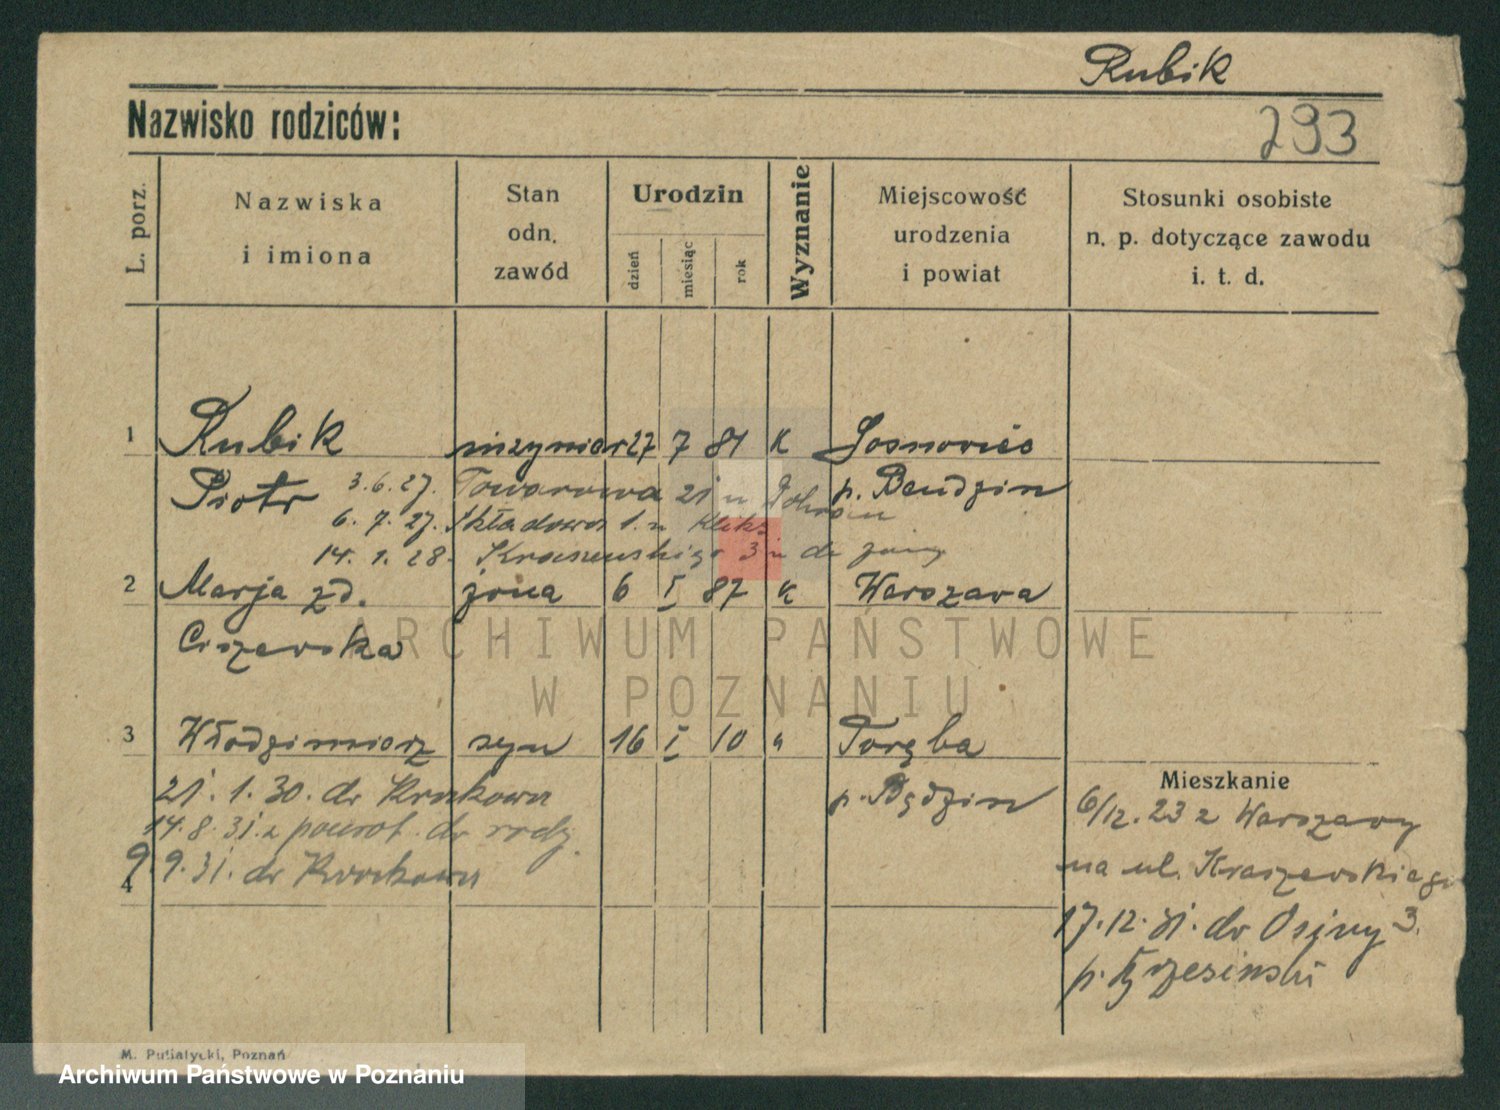 Rubik
Nazwisko rodziców:
293
L. porz.
Nazwiska
i imiona
Stan
odn.
zawód
Urodzin
dzień
miesiąc
rok
Wyznanie
Miejscowość
urodzenia
i powiat
Stosunki osobiste
n. p. dotyczące zawodu
i. t. d.
1 Rubik inżynier 27 7 81 K Sosnowiec
Piotr 3.6.27. Towarowa 21 p. Bendzin
6. 7. 27. Składowa 1.
14. 1. 28. Kraszewskiego 3
2 Marja zd. żona 6 I 87 K Warszawa
Ciszewska
ARCHIWUM PAŃSTWOWE
W POZNANIU
3 Włodzimierz syn 16 I 10 " Poręba
p. Będzin
21. 1. 30. do Krakowa
14. 8. 31. z powrot. do rodz.
9. 9. 31. do Krakowa
4
Mieszkanie
6/12. 23 z Warszawy
na ul. Kraszewskiego
3.
17. 12. 31. do Osiny
p.
M. Putiatycki, Poznań
Archiwum Państwowe w Poznaniu